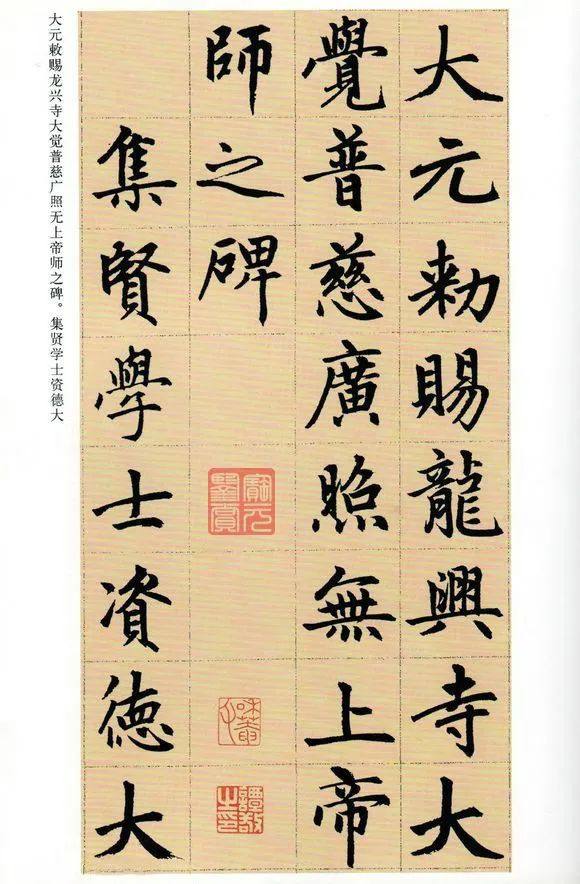 大元敕赐龙兴寺大觉普慈广照无上帝师之碑。集贤学士资德大
大元勑賜龍興寺大
覺普慈廣照無上帝
師之碑
集賢學士資德大